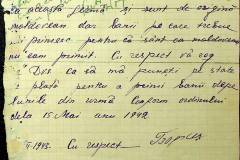 de această ... și sunt de origină
moldovean dar banii pe care trebue
să primesc pentru că sânt ca moldovean
nu iam primit. Cu respect vă rog
Dvs. ca să mă puneți pe state
de plată pentru a primi banii depe
lunile din urmă conform ordinului
dela 15 Mai anu 1942.
1943. Cu respect